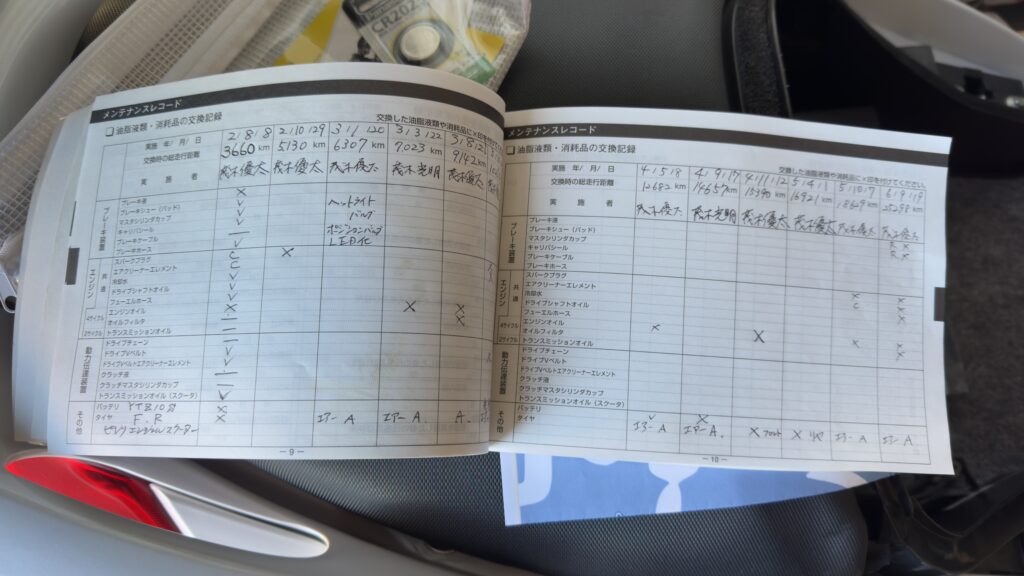 CR202
メンテナンスレコード
油脂液類・消耗品の交換記録
交換した油脂液類や消耗品に×印を付けて
実施 年/月/日 2/8/8 2/10/29 3/1/20 3/3/22 3/8/2
交換時の総走行距離 3660 km 5130 km 6307 km 7023 km 9142 km
実施者 茂木優太 茂木優太 茂木優太 茂木光明 茂木優太
ブレーキ装置
ブレーキ液 ×
ブレーキシュー(パッド) ∨ ヘッドライト
マスタシリンダカップ ∨ バルブ
キャリパシール ∨
ブレーキケーブル — ポジションバルブ
ブレーキホース ∨ LED化
エンジン
共通
スパークプラグ ×
エアクリーナーエレメント
冷却水
ドライブシャフトオイル
フューエルホース
4サイクル
エンジンオイル × × ×
オイルフィルタ — ×
2サイクル
トランスミッションオイル —
動力伝達装置
ドライブチェーン
ドライブVベルト
ドライブVベルトエアクリーナーエレメント
クラッチ液
クラッチマスタシリンダカップ
トランスミッションオイル(スクータ)
その他
バッテリ YTZ10S ×
タイヤ F.R × エアーA エアーA. A.
ピレリ エンジェルスクーター
－9－
メンテナンスレコード
油脂液類・消耗品の交換記録
交換した油脂液類や消耗品に×印を付けてください。
実施 年/月/日 4/5/8 4/9/17 4/11/12 5/4/1 5/10/7 6/9/19
交換時の総走行距離 12682 km 14657 km 15390 km 16921 km 18629 km 25298 km
実施者 茂木優太 茂木光明 茂木優太 茂木優太 茂木優太 茂木優太
ブレーキ装置
ブレーキ液
ブレーキシュー(パッド)
マスタシリンダカップ
キャリパシール
ブレーキケーブル
ブレーキホース
エンジン
共通
スパークプラグ
エアクリーナーエレメント
冷却水
ドライブシャフトオイル
フューエルホース
4サイクル
エンジンオイル ×
オイルフィルタ ×
2サイクル
トランスミッションオイル
動力伝達装置
ドライブチェーン
ドライブVベルト
ドライブVベルトエアクリーナーエレメント
クラッチ液
クラッチマスタシリンダカップ
トランスミッションオイル(スクータ)
その他
バッテリ
タイヤ エアーA エアーA. ×フロント ×リヤ エアーA エアーA
－10－